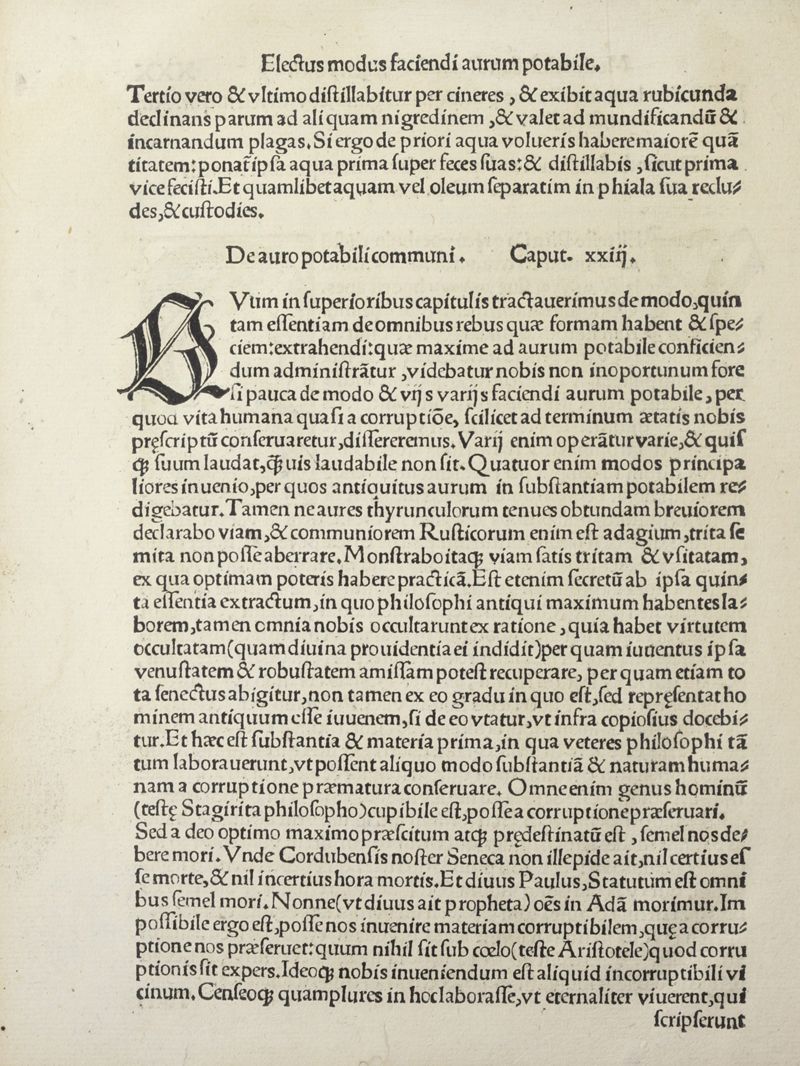 Electus modus faciendi aurum potabile.
Tertio vero & vltimo diſtillabitur per cineres, & exibit aqua rubicunda
declinans parum ad aliquam nigredinem, & valet ad mundificandū &
incarnandum plagas. Si ergo de priori aqua volueris habere maiorē quā
titatem: ponat᷑ ipſa aqua prima ſuper feces ſuas: & diſtillabis, ſicut prima
vice feciſti. Et quamlibet aquam vel oleum ſeparatim in phiala ſua reclu⸗
des, & cuſtodies.
De auro potabili communi. Caput. xxiij.
QVum in ſuperioribus capitulis tractauerimus de modo, quin
tam eſſentiam de omnibus rebus quæ formam habent & ſpe⸗
ciem: extrahendi: quæ maxime ad aurum potabile conficien⸗
dum adminiſtrātur, videbatur nobis non inoportunum fore
ſi pauca de modo & vijs varijs faciendi aurum potabile, per
quod vita humana quaſi a corruptiōe, ſcilicet ad terminum ætatis nobis
pręſcriptū conſeruaretur, diſſereremus. Varij enim operātur varie, & quiſ
qꝫ ſuum laudat, q̄uis laudabile non ſit. Quatuor enim modos principa
liores inuenio, per quos antiquitus aurum in ſubſtantiam potabilem re⸗
digebatur. Tamen ne aures thyrunculorum tenues obtundam breuiorem
declarabo viam, & communiorem Ruſticorum enim eſt adagium, trita ſe
mita non poſſe aberrare. Monſtrabo itaqꝫ viam ſatis tritam & vſitatam,
ex qua optimam poteris habere practicā. Eſt etenim ſecretū ab ipſa quin⸗
ta eſſentia extractum, in quo philoſophi antiqui maximum habentes la⸗
borem, tamen omnia nobis occultarunt ex ratione, quia habet virtutem
occultatam (quam diuina prouidentia ei indidit) per quam iuuentus ipſa
venuſtatem & robuſtatem amiſſam poteſt recuperare, per quam etiam to
ta ſenectus abigitur, non tamen ex eo gradu in quo eſt, ſed repręſentat ho
minem antiquum eſſe iuuenem, ſi de eo vtatur, vt infra copioſius docebi⸗
tur. Et hæc eſt ſubſtantia & materia prima, in qua veteres philoſophi tā
tum laborauerunt, vt poſſent aliquo modo ſubſtantiā & naturam huma⸗
nam a corruptione præmatura conſeruare. Omne enim genus hominū
(teſtę Stagirita philoſopho) cupibile eſt, poſſe a corruptione præſeruari.
Sed a deo optimo maximo præſcitum atqꝫ prędeſtinatū eſt, ſemel nos de⸗
bere mori. Vnde Cordubenſis noſter Seneca non illepide ait, nil certius eſ
ſe morte, & nil incertius hora mortis. Et diuus Paulus, Statutum eſt omni
bus ſemel mori. Nonne (vt diuus ait propheta) oēs in Adā morimur. Im
poſſibile ergo eſt, poſſe nos inuenire materiam corruptibilem, quę a corru⸗
ptione nos præſeruet: quum nihil ſit ſub cœlo (teſte Ariſtotele) quod corru
ptionis ſit expers. Ideoqꝫ nobis inueniendum eſt aliquid incorruptibili vi
cinum. Cenſeoqꝫ quamplures in hoc laboraſſe, vt eternaliter viuerent, qui
ſcripſerunt